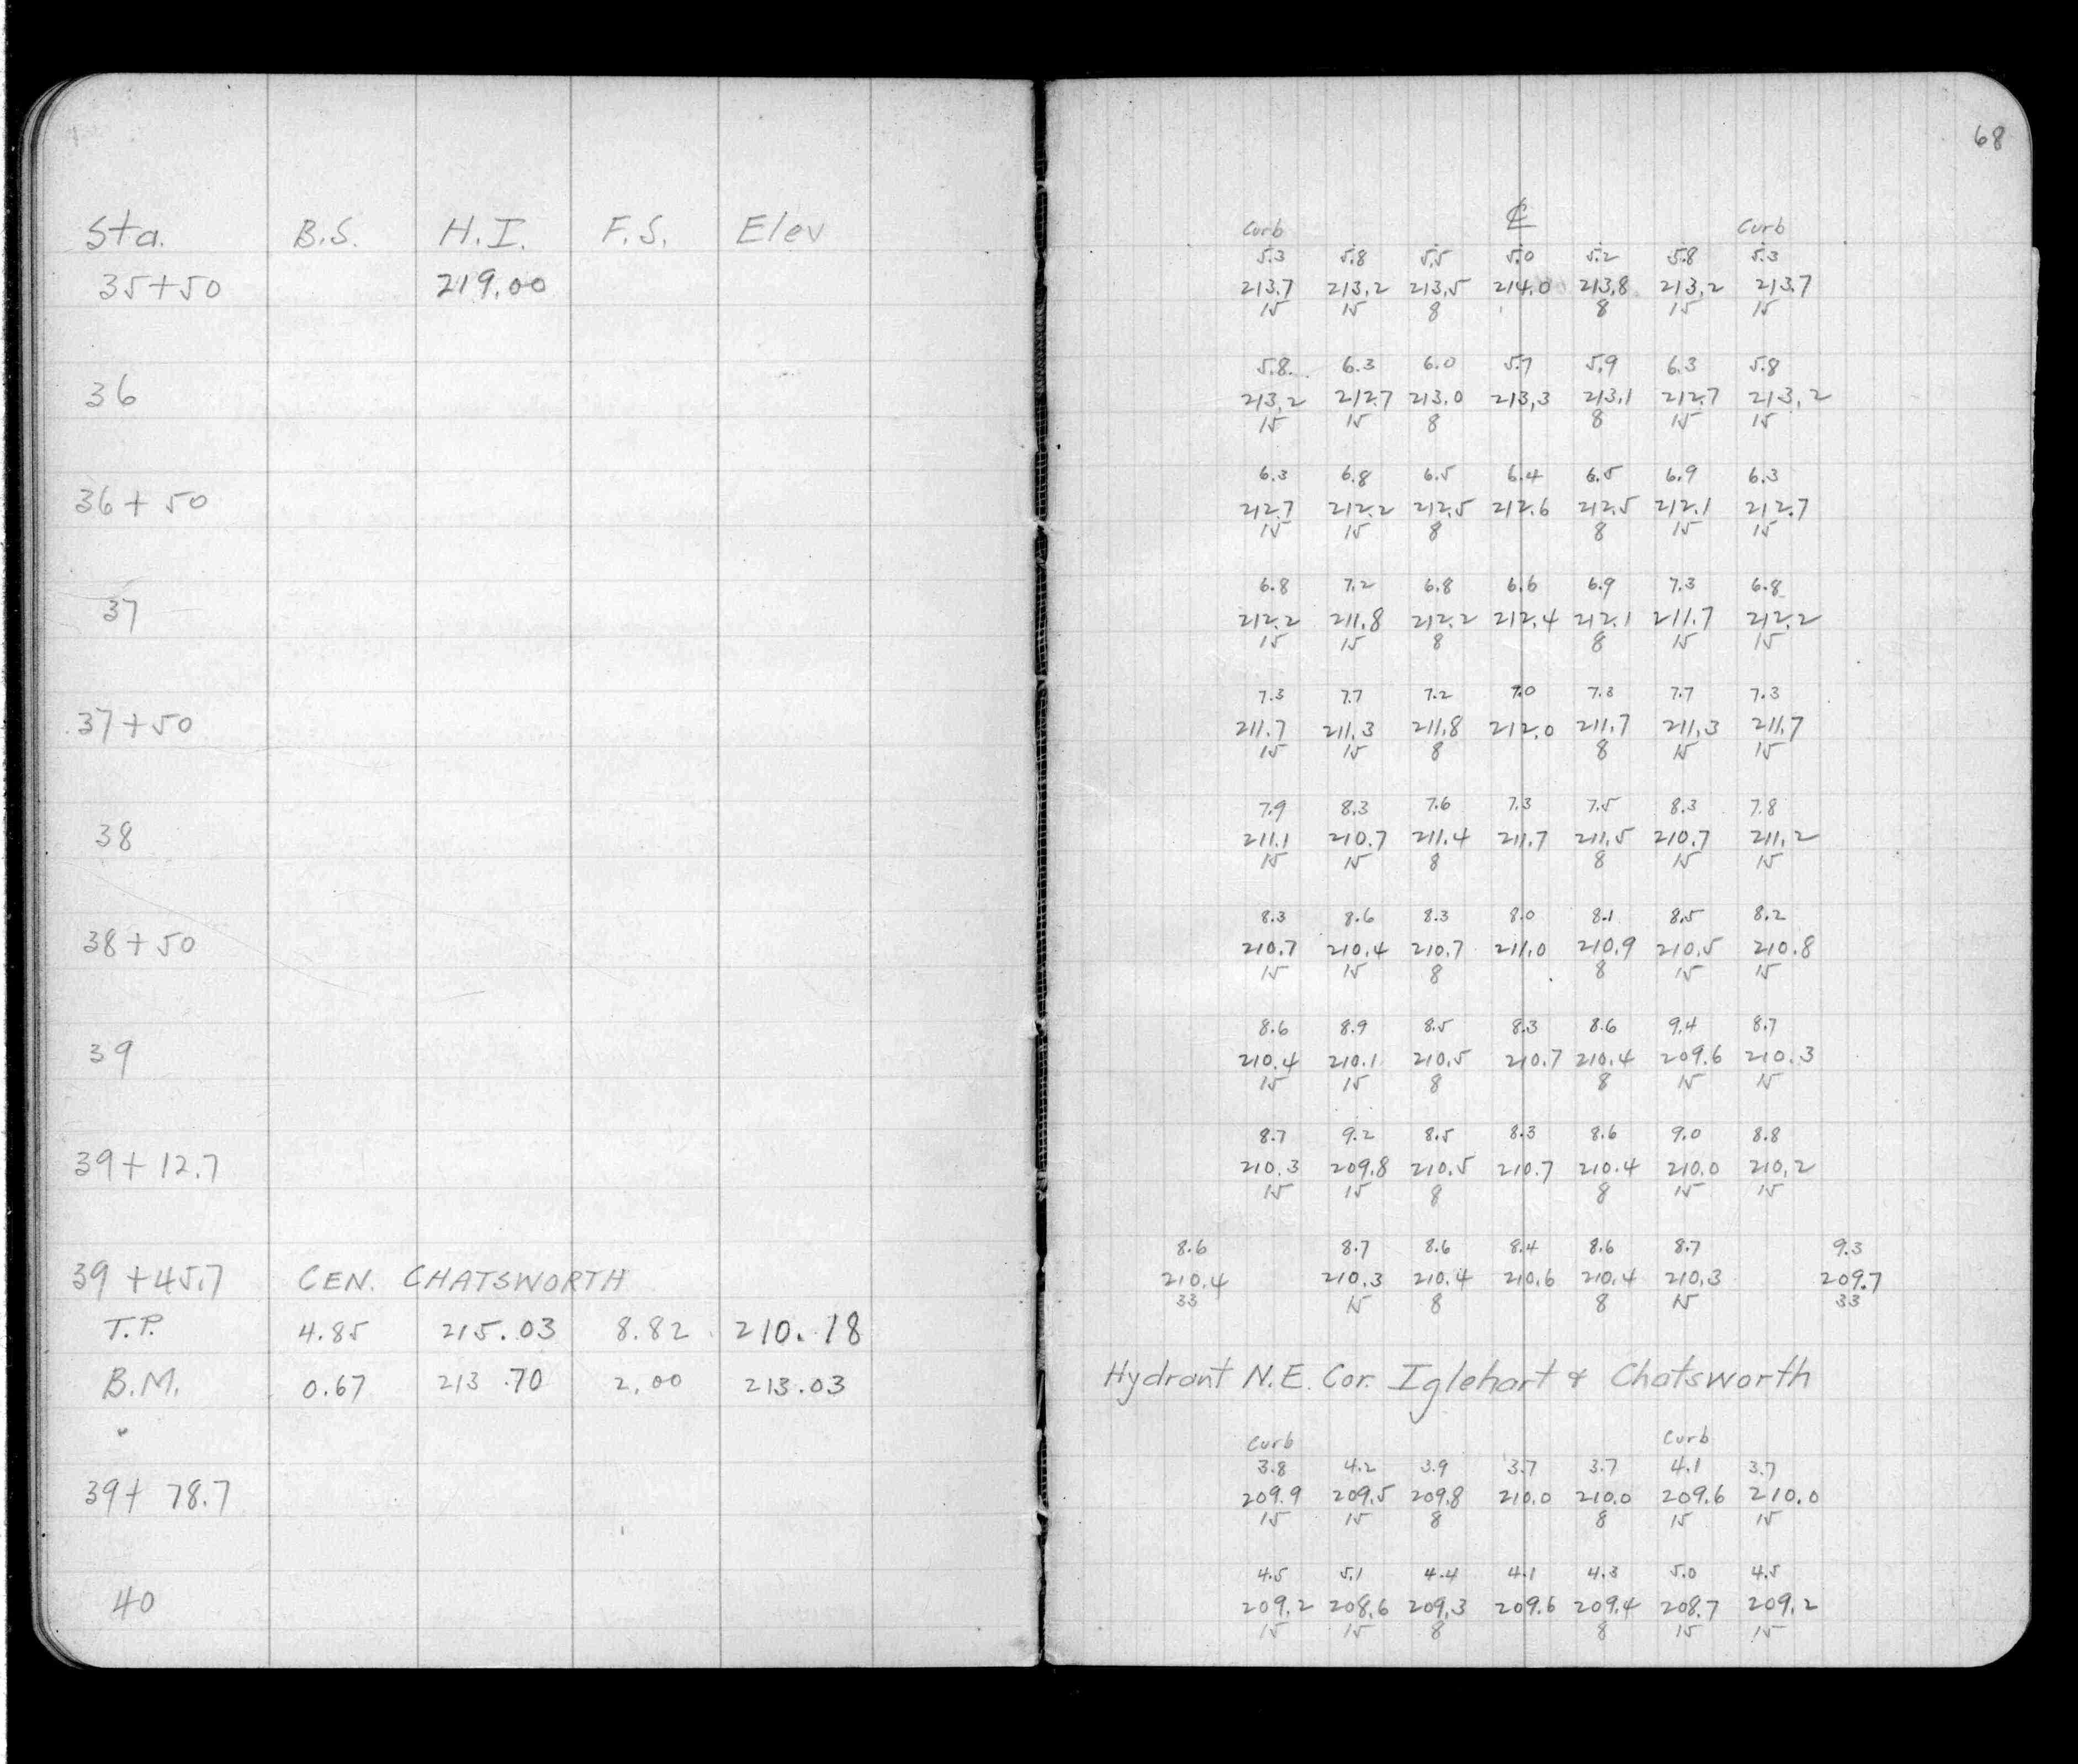 68
Sta. B.S. H.I. F.S. Elev
35+50 219.00
36
36 + 50
37
37+50
38
38+50
39
39+ 12.7
39 +45.7 CEN. CHATSWORTH
T.P. 4.85 215.03 8.82 210.18
B.M. 0.67 213.70 2.00 213.03
"
39+ 78.7
40
Curb ℄ Curb
5.3 5.8 5.5 5.0 5.2 5.8 5.3
213.7 213.2 213.5 214.0 213.8 213.2 213.7
15 15 8 8 15 15
5.8 6.3 6.0 5.7 5.9 6.3 5.8
213.2 212.7 213.0 213.3 213.1 212.7 213.2
15 15 8 8 15 15
6.3 6.8 6.5 6.4 6.5 6.9 6.3
212.7 212.2 212.5 212.6 212.5 212.1 212.7
15 15 8 8 15 15
6.8 7.2 6.8 6.6 6.9 7.3 6.8
212.2 211.8 212.2 212.4 212.1 211.7 212.2
15 15 8 8 15 15
7.3 7.7 7.2 7.0 7.3 7.7 7.3
211.7 211.3 211.8 212.0 211.7 211.3 211.7
15 15 8 8 15 15
7.9 8.3 7.6 7.3 7.5 8.3 7.8
211.1 210.7 211.4 211.7 211.5 210.7 211.2
15 15 8 8 15 15
8.3 8.6 8.3 8.0 8.1 8.5 8.2
210.7 210.4 210.7 211.0 210.9 210.5 210.8
15 15 8 8 15 15
8.6 8.9 8.5 8.3 8.6 9.4 8.7
210.4 210.1 210.5 210.7 210.4 209.6 210.3
15 15 8 8 15 15
8.7 9.2 8.5 8.3 8.6 9.0 8.8
210.3 209.8 210.5 210.7 210.4 210.0 210.2
15 15 8 8 15 15
8.6 8.7 8.6 8.4 8.6 8.7 9.3
210.4 210.3 210.4 210.6 210.4 210.3 209.7
33 15 8 8 15 33
Hydrant N.E. Cor. Iglehart & Chatsworth
Curb Curb
3.8 4.2 3.9 3.7 3.7 4.1 3.7
209.9 209.5 209.8 210.0 210.0 209.6 210.0
15 15 8 8 15 15
4.5 5.1 4.4 4.1 4.3 5.0 4.5
209.2 208.6 209.3 209.6 209.4 208.7 209.2
15 15 8 8 15 15